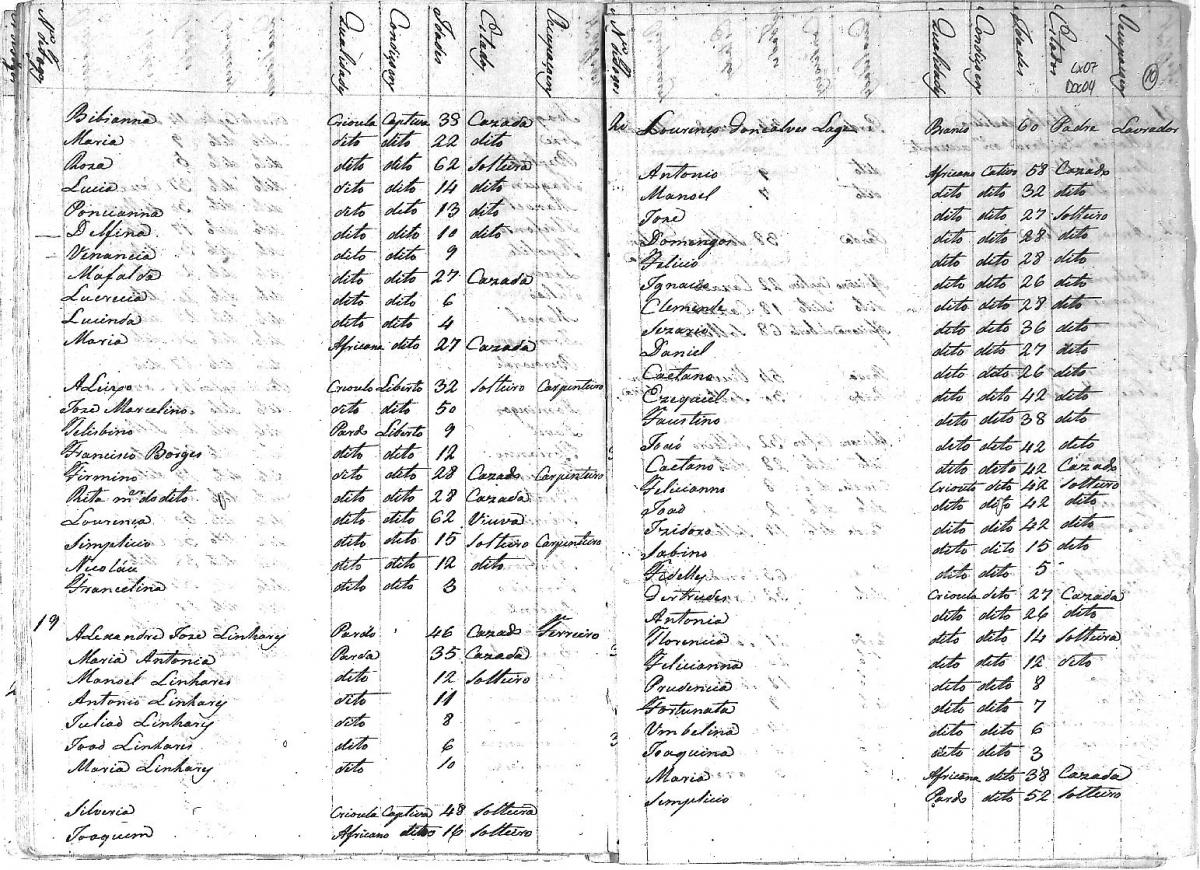 Nos do Fogos
Qualidady
Condiçoy
Idades
Estady
Ocupaçoy
Bibianna Crioula Captiva 38 Cazada
Maria dito dito 22 dito
Roza dito dito 62 Solteira
Lucia dito dito 14 dito
Poncianna dito dito 13 dito
Delfina dito dito 10 dito
Venancia dito dito 9
Mafalda dito dito 27 Cazada
Lucrecia dito dito 6
Lucinda dito dito 4
Maria Africana dito 27 Cazada
Aleixo Crioulo Liberto 32 Solteiro Carpenteiro
Joze Marcelino dito dito 50
Telisbino Pardo Liberto 9
Francisco Borges dito dito 12
Firmino dito dito 28 Cazado Carpenteiro
Rita mer do dito dito dito 28 Cazada
Lourença dito dito 62 Viuva
Simplicio dito dito 15 Solteiro Carpenteiro
Nicoláu dito dito 12 dito
Francelina dito dito 3
19
Alexandre Joze Linhary Pardo 46 Cazado Ferreiro
Maria Antonia Parda 35 Cazada
Manoel Linhares dito 12 Solteiro
Antonio Linhary dito 11
Juliaõ Linhary dito 8
Joaõ Linhares dito 6
Maria Linhary dito 10
Silveria Crioula Captiva 48 Solteira
Joaquim Africano dito 16 Solteiro
Nos do Fogos
Qualidady
Condiçoy
Idades
Estados
Ocupaçoy
Cx07
Doc04
10
20 Lourenço Gonçalves Lage Branco 60 Padre Lavrador
Antonio Africano Cativo 58 Cazado
Manoel dito dito 32 dito
Joze dito dito 27 Solteiro
Domingos dito dito 28 dito
Felicio dito dito 28 dito
Ignacio dito dito 26 dito
Clemente dito dito 28 dito
Sezario dito dito 36 dito
Daniel dito dito 27 dito
Caetano dito dito 26 dito
Ezequiel dito dito 42 dito
Faustino dito dito 38 dito
Joaõ dito dito 42 dito
Caetano dito dito 42 Cazado
Felicianno Crioulo dito 42 Solteiro
Joaõ dito dito 42 dito
Izidoro dito dito 42 dito
Sabino dito dito 15 dito
Fidelly dito dito 5
Gertrudes Crioula dito 27 Cazada
Antonia dito dito 26 dito
Florencia dito dito 14 Solteira
Felicianna dito dito 12 dito
Prudencia dito dito 8
Fortunata dito dito 7
Umbelina dito dito 6
Joaquina dito dito 3
Maria Africana dito 38 Cazada
Simplicio Pardo dito 52 Solteiro